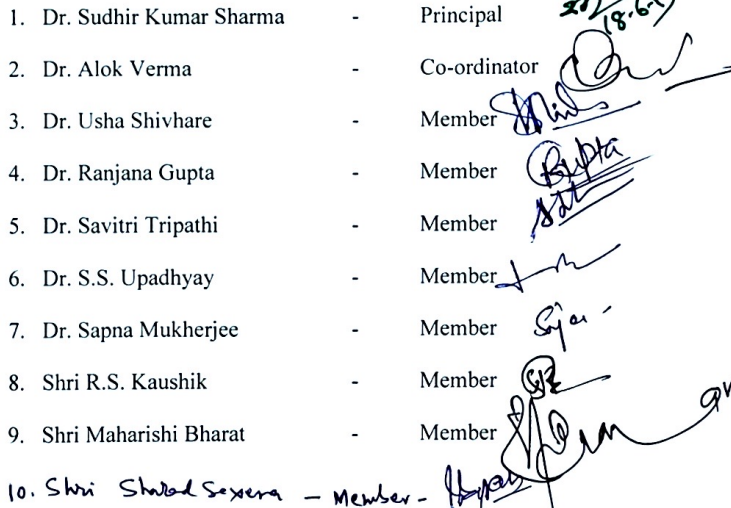 1. Dr. Sudhir Kumar Sharma - Principal
2. Dr. Alok Verma - Co-ordinator
3. Dr. Usha Shivhare - Member
4. Dr. Ranjana Gupta - Member Gupta
5. Dr. Savitri Tripathi - Member
6. Dr. S.S. Upadhyay - Member
7. Dr. Sapna Mukherjee - Member
8. Shri R.S. Kaushik - Member
9. Shri Maharishi Bharat - Member
10. Shri Sharad Sexena - Member -